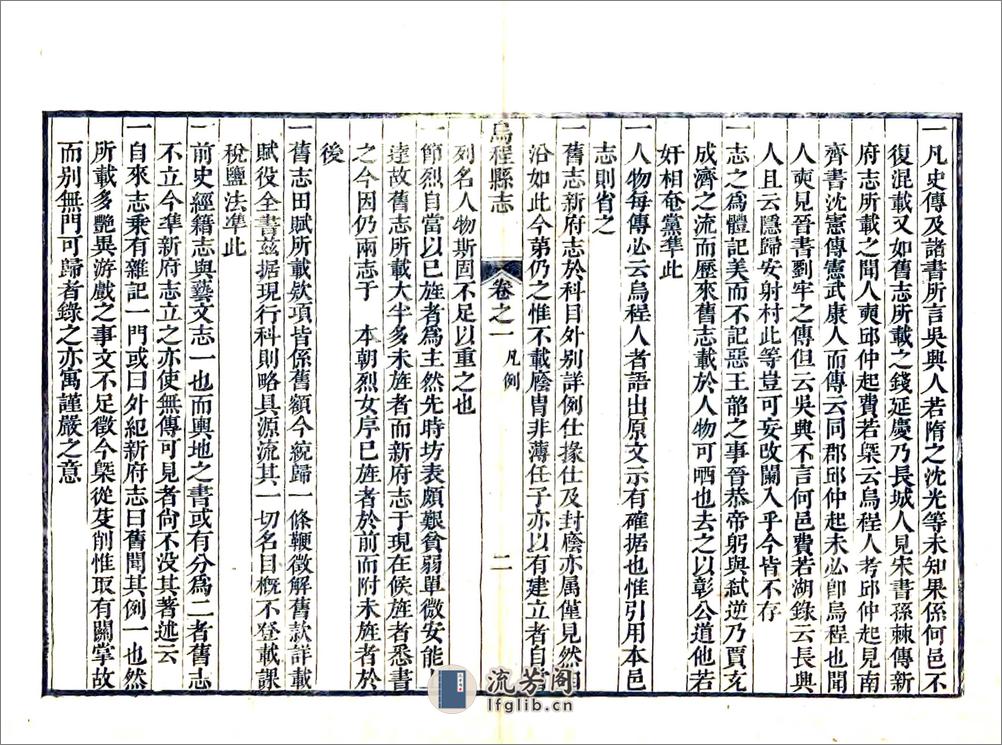 一凡史傳及諸書所言吳興人若隋之沈光等未知果係何邑不
復混載又如舊志所載之錢延慶乃長城人見宋書孫棘傳新
府志所載之聞人奭邱仲起費若槩云烏程人考邱仲起見南
齊書沈憲傳憲武康人而傳云同郡邱仲起未必卽烏程也聞
人奭見晉書劉牢之傳但云吳興不言何邑費若湖錄云長興
人且云隱歸安射村此等豈可妄改闌入乎今皆不存
一志之爲體記美而不記惡王韶之事晉恭帝躬與弑逆乃賈充
成濟之流而歷來舊志載於人物可哂也去之以彰公道他若
奸相奄黨準此
一人物每傳必云烏程人者語出原文示有確据也惟引用本邑
志則省之
一舊志新府志於科目外别詳例仕掾仕及封廕亦属僅見然相
沿如此今第仍之惟不載廕胄非薄任子亦以有建立者自當
烏程縣志 卷之一 凡例 二
列名人物斯固不足以重之也
一節烈自當以已旌者爲主然先時坊表頗艱貧弱單微安能上
達故舊志所載大半多未旌者而新府志于現在候旌者悉書
之今因仍兩志于 本朝烈女序已旌者於前而附未旌者於
後
一舊志田賦所載欵項皆係舊額今統歸一條鞭徵解舊款詳載
賦役全書兹据現行科則略具源流其一切名目槪不登載課
稅鹽法準此
一前史經籍志與藝文志一也而輿地之書或有分爲二者舊志
不立今準新府志立之亦使無傳可見者尙不没其著述云
一自來志乘有雜記一門或曰外紀新府志曰舊聞其例一也然
所載多艷異游戲之事文不足徵今槩從芟削惟取有關掌故
而别無門可歸者錄之亦寓謹嚴之意
流芳阁
lfglib.cn